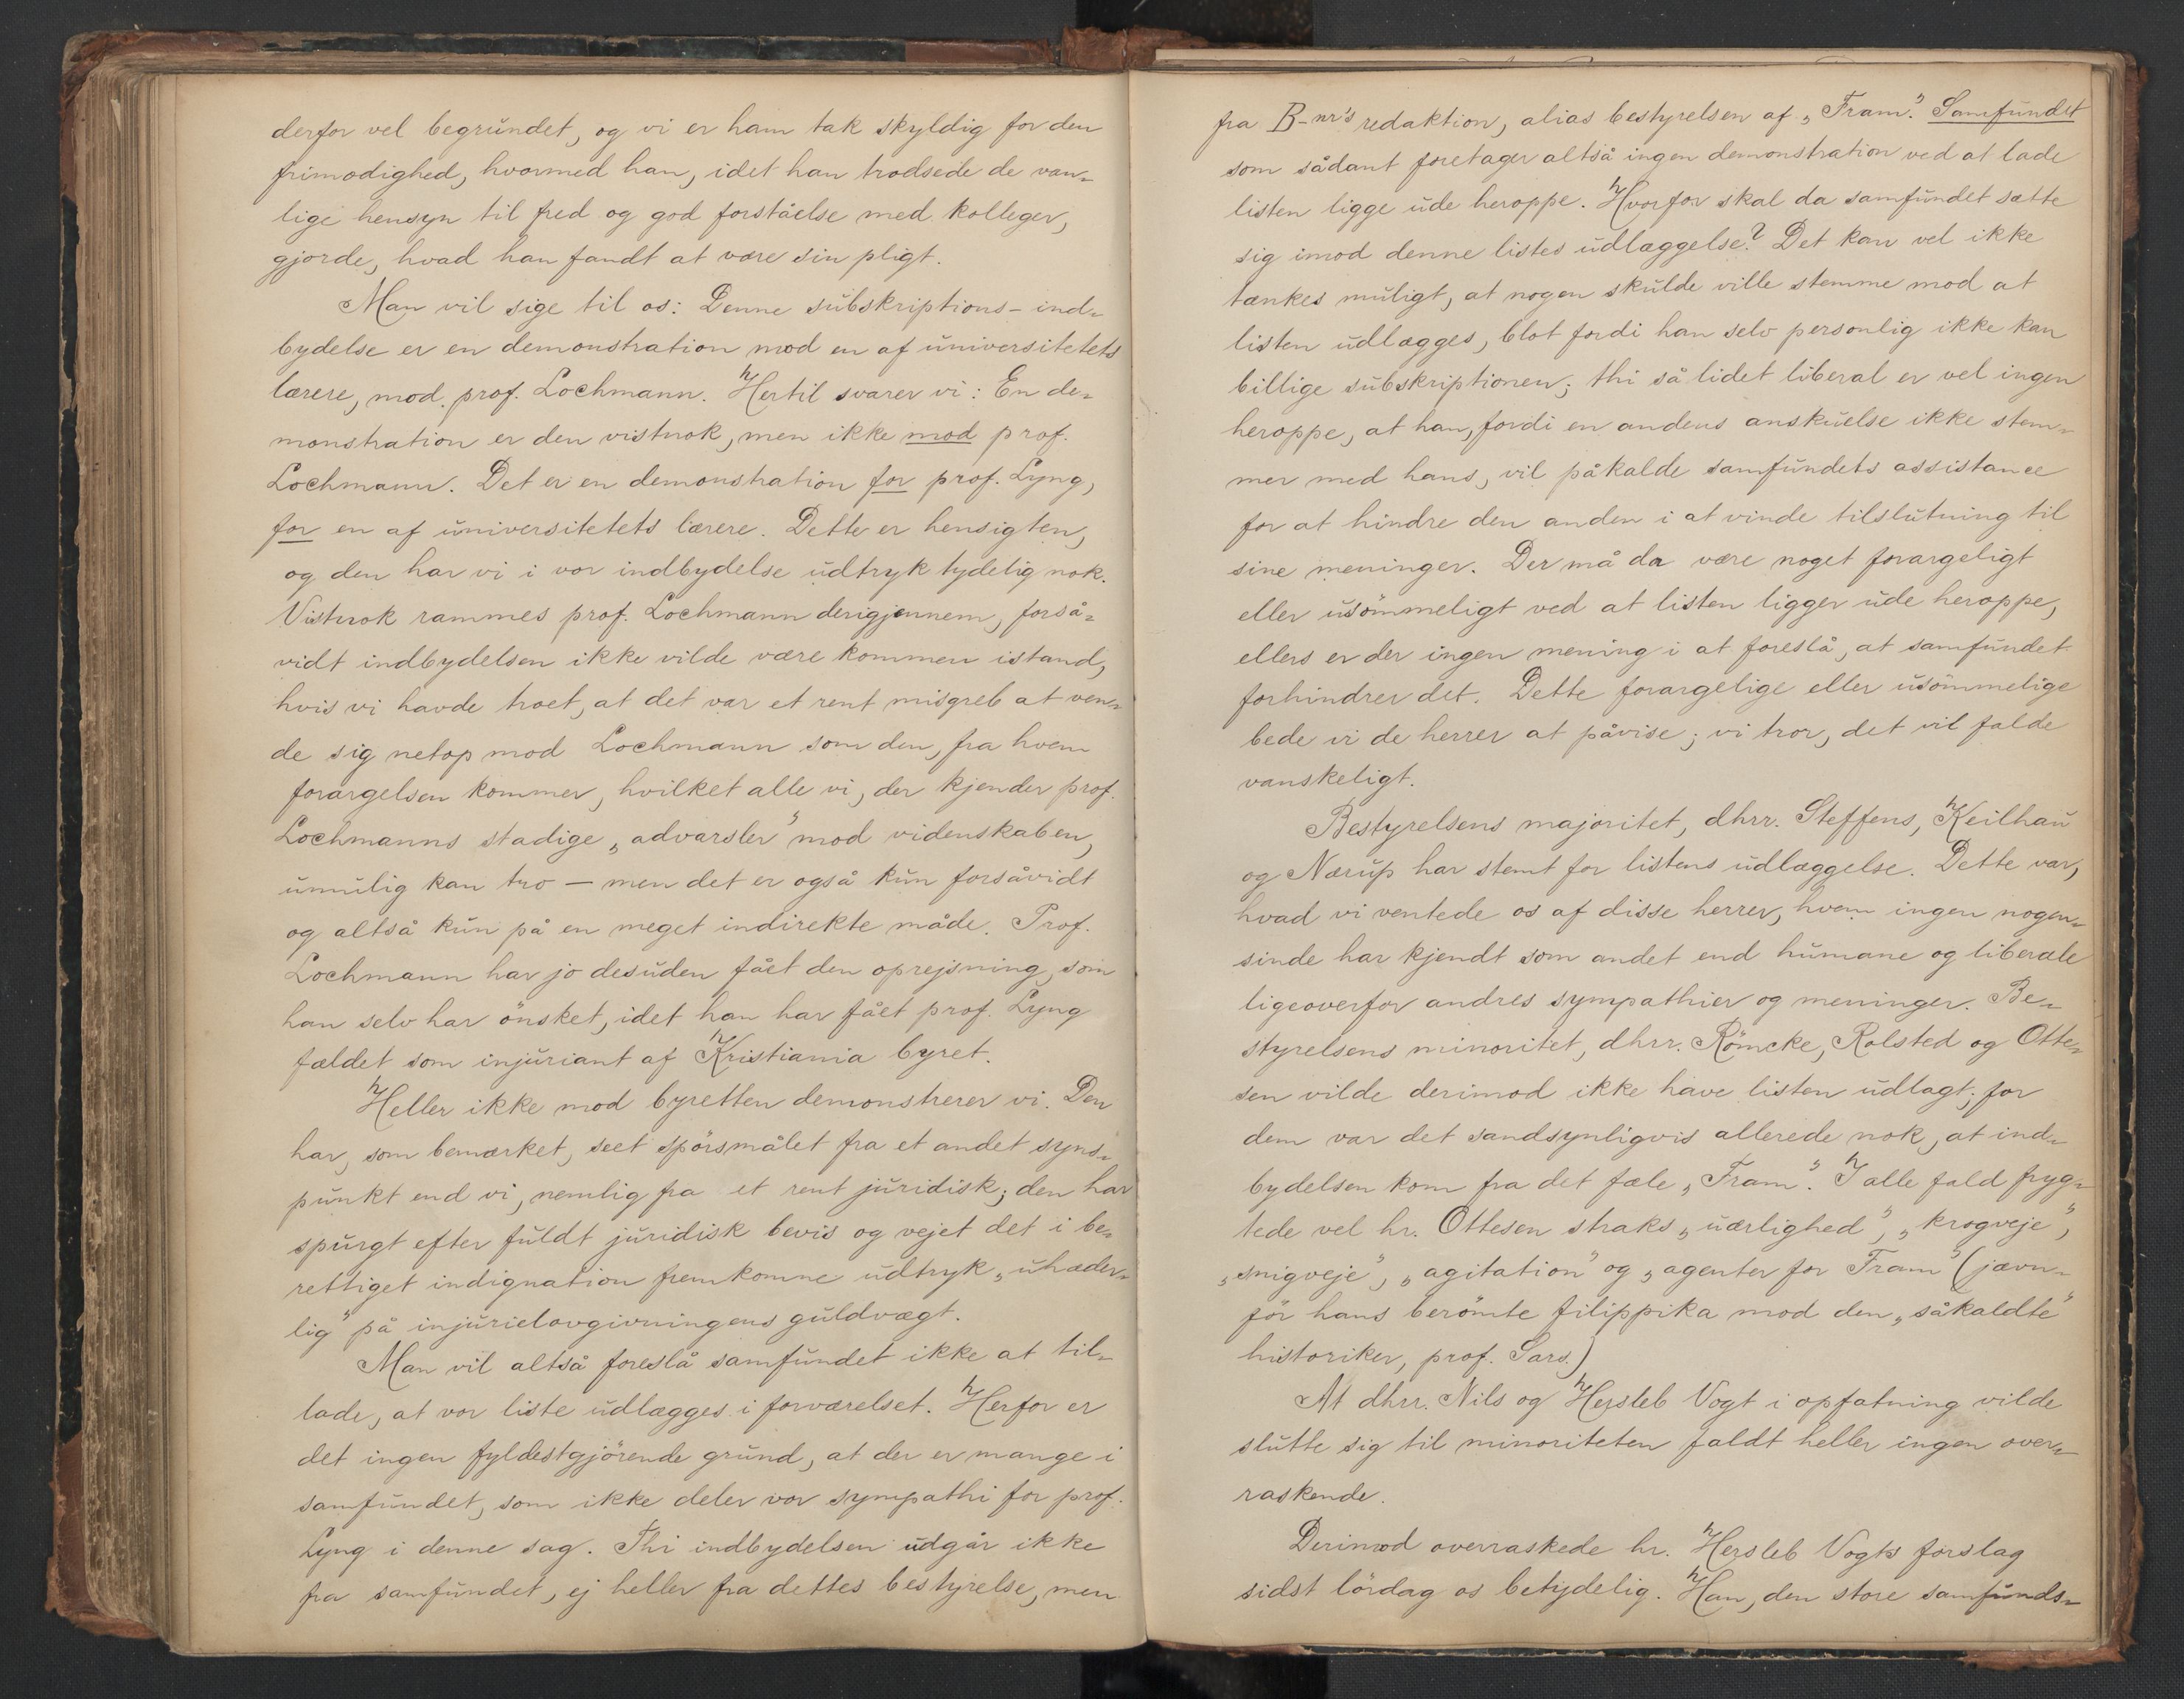 derfor vel begrundet, og vi er ham tak skyldig for den
frimodighed, hvormed han, idet han trodsede de van-
lige hensyn til fred og god forståelse med kolleger,
gjorde, hvad han fandt at være sin pligt.
Man vil sige til os: Denne subskriptions-ind-
bydelse er en demonstration mod en af universitetets
lærere, mod prof. Lochmann. Hertil svarer vi: En de-
monstration er den vistnok, men ikke mod prof.
Lochmann. Det er en demonstration for prof. Lyng,
for en af universitetets lærere. Dette er hensigten,
og den har vi i vor indbydelse udtryk tydelig nok.
Vistnok rammes prof. Lochmann derigjennem, forså-
vidt indbydelsen ikke vilde være kommen istand,
hvis vi havde troet, at det var et rent misgreb at ven-
de sig netop mod Lochmann som den, fra hvem
forargelsen kommer, hvilket alle vi, der kjender prof.
Lochmanns stadige „advarsler” mod videnskaben,
umulig kan tro – men det er også kun forsåvidt
og altså kun på en meget indirekte måde. Prof.
Lochmann har jo desuden fået den oprejsning, som
han selv har önsket, idet han har fået prof. Lyng
fældet som injuriant af Kristiania byret.
Heller ikke mod byretten demonstrerer vi. Den
har, som bemærket, seet spörsmålet fra et andet syns-
punkt end vi, nemlig fra et rent juridisk; den har
spurgt efter fuldt juridisk bevis og vejet det i be-
rettiget indignation fremkomne udtryk „uhæder-
lig” på injurielovgivningens guldvægt.
Man vil altså foreslå samfundet ikke at til-
lade, at vor liste udlægges i forværelset. Herfor er
det ingen fyldestgjörende grund, at der er mange i
samfundet, som ikke deler vor sympathi for prof.
Lyng i denne sag. Thi indbydelsen udgår ikke
fra samfundet, ej heller fra dettes bestyrelse, men
fra B-nr's redaktion, alias bestyrelsen af „Fram”. Samfundet
som sådant foretager altså ingen demonstration ved at lade
listen ligge ude heroppe. Hvorfor skal da samfundet sætte
sig imod denne listes udlæggelse? Det kan vel ikke
tænkes muligt, at nogen skulde ville stemme mod at
listen udlægges, blot fordi han selv personlig ikke kan
billige subskriptionen; thi så lidet liberal er vel ingen
heroppe, at han, fordi en andens anskuelse ikke stem-
mer med hans, vil påkalde samfundets assistance
for at hindre den anden i at vinde tilslutning til
sine meninger. Der må da være noget forargeligt
eller usömmeligt ved at listen ligger ude heroppe,
ellers er der ingen mening i at foreslå, at samfundet
forhindrer det. Dette forargelige eller usömmelige
bede vi de herrer at påvise; vi tror, det vil falde
vanskeligt.
Bestyrelsens majoritet, dhrr. Steffens, Keilhau
og Nærup har stemt for listens udlæggelse. Dette var,
hvad vi ventede os af disse herrer, hvem ingen nogen-
sinde har kjendt som andet end humane og liberale
ligeoverfor andres sympathier og meninger. Be-
styrelsens minoritet, dhrr. Römcke, Rolsted og Otte-
sen vilde derimod ikke have listen udlagt; for
dem var det sandsynligvis allerede nok, at ind-
bydelsen kom fra det fæle „Fram”. I alle fald fryg-
tede vel hr. Ottesen straks „uærlighed”, „krogveje”,
„snigveje”, „agitation” og „agenter for Fram” (jævn-
för hans berömte filippika mod den „såkaldte”
historiker, prof. Sars.)
At dhrr. Nils og Hersleb Vogt i opfatning vilde
slutte sig til minoriteten faldt heller ingen over-
raskende.
Derimod overraskede hr. Hersleb Vogts forslag
sidst lördag os betydelig. Han, den store samfunds-